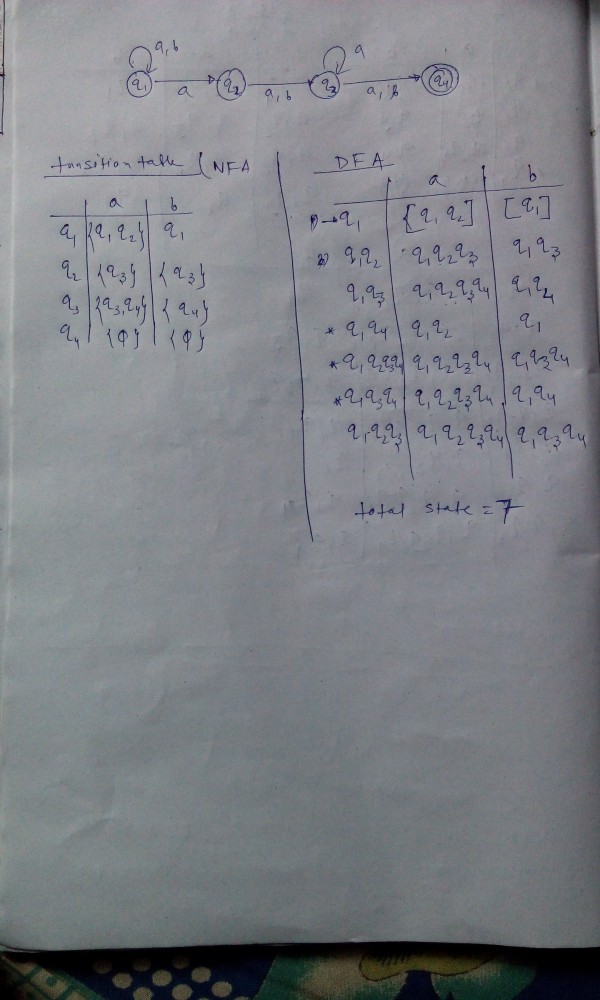 a,b a
q1 a q2 a,b q3 a,b q4
transition table (NFA
a b
q1 {q1 q2} q1
q2 {q3} {q3}
q3 {q3,q4} {q4}
q4 {ϕ} {ϕ}
DFA
a b
1) → q1 [q1 q2] [q1]
q1q2 q1q2q3 q1q3
q1q3 q1q2q3q4 q1q4
* q1q4 q1q2 q1
* q1q2q3q4 q1q2q3q4 q1q3q4
* q1q3q4 q1q2q3q4 q1q4
q1q2q3 q1q2q3q4 q1q3q4
total state = 7